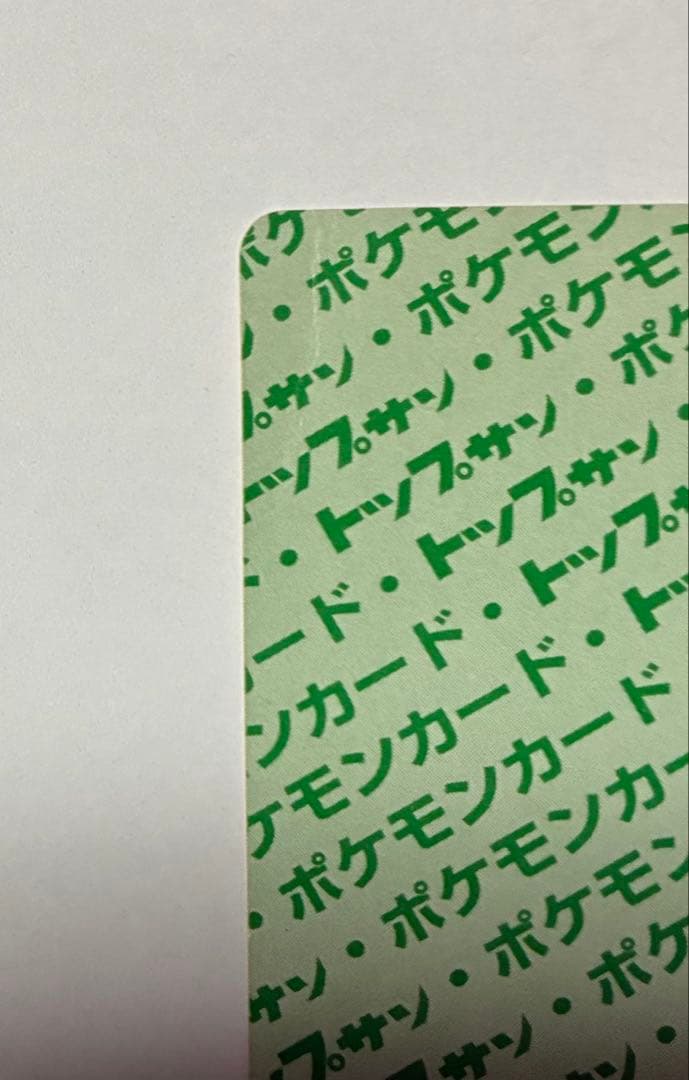 ポケ
・ポケモ
プサン・ポケモン
トップサン・ポケモ
・トップサン・ポケ
ード・トップサン・
ンカード・トップサ
ケモンカード・トッ
・ポケモンカード
サン・ポケモンカー
プサン・ポケモン
プサン・ポケ
ン・